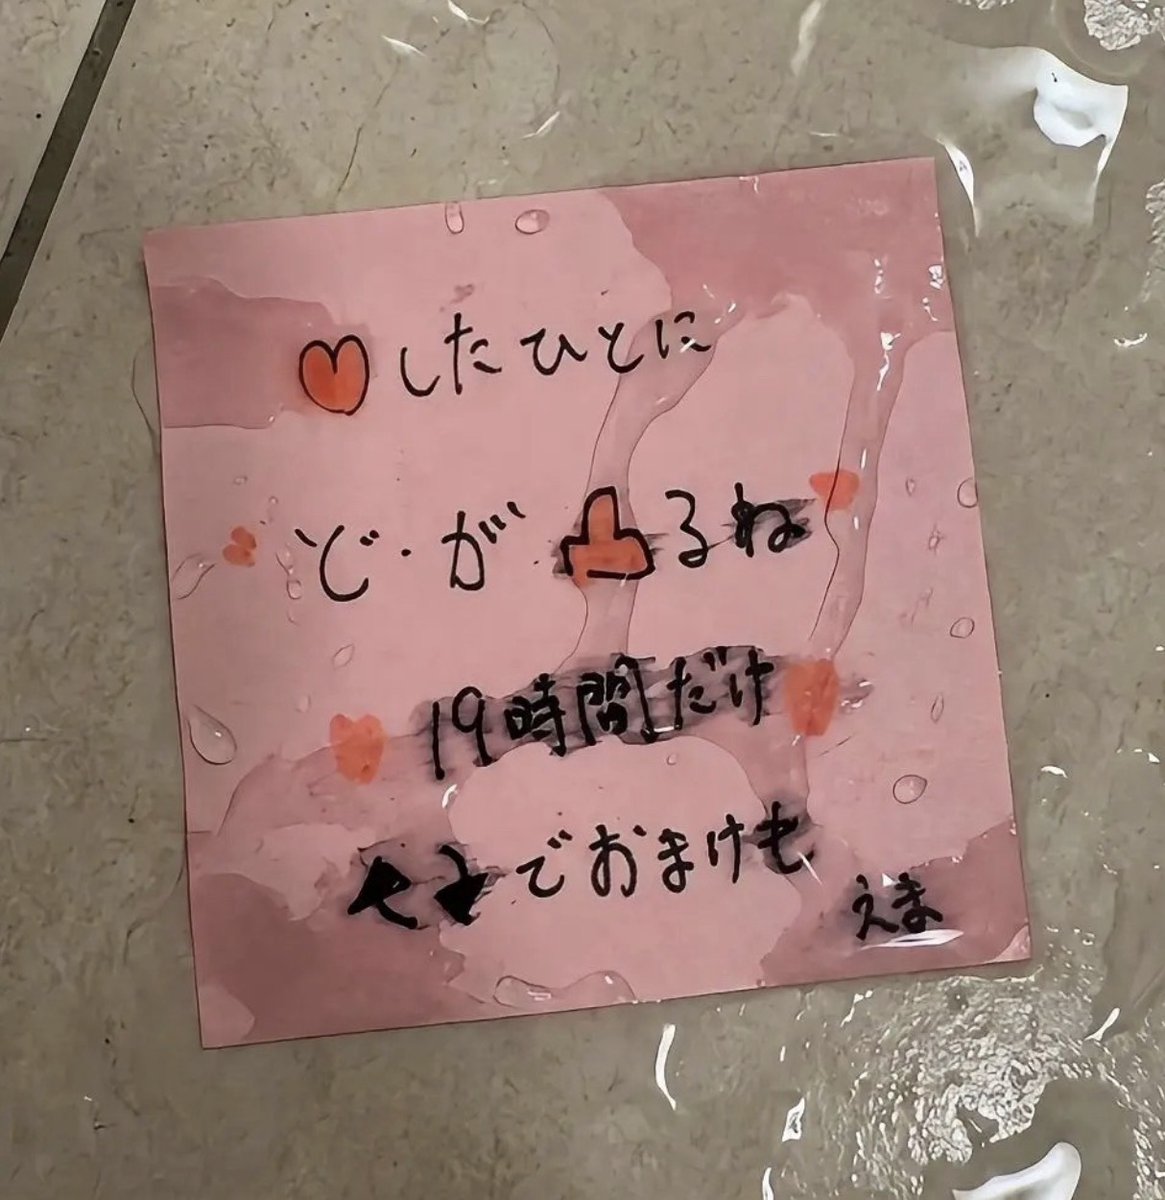 ♡したひとに
ど・が凸るね
19時間だけ
でおまけも
えま